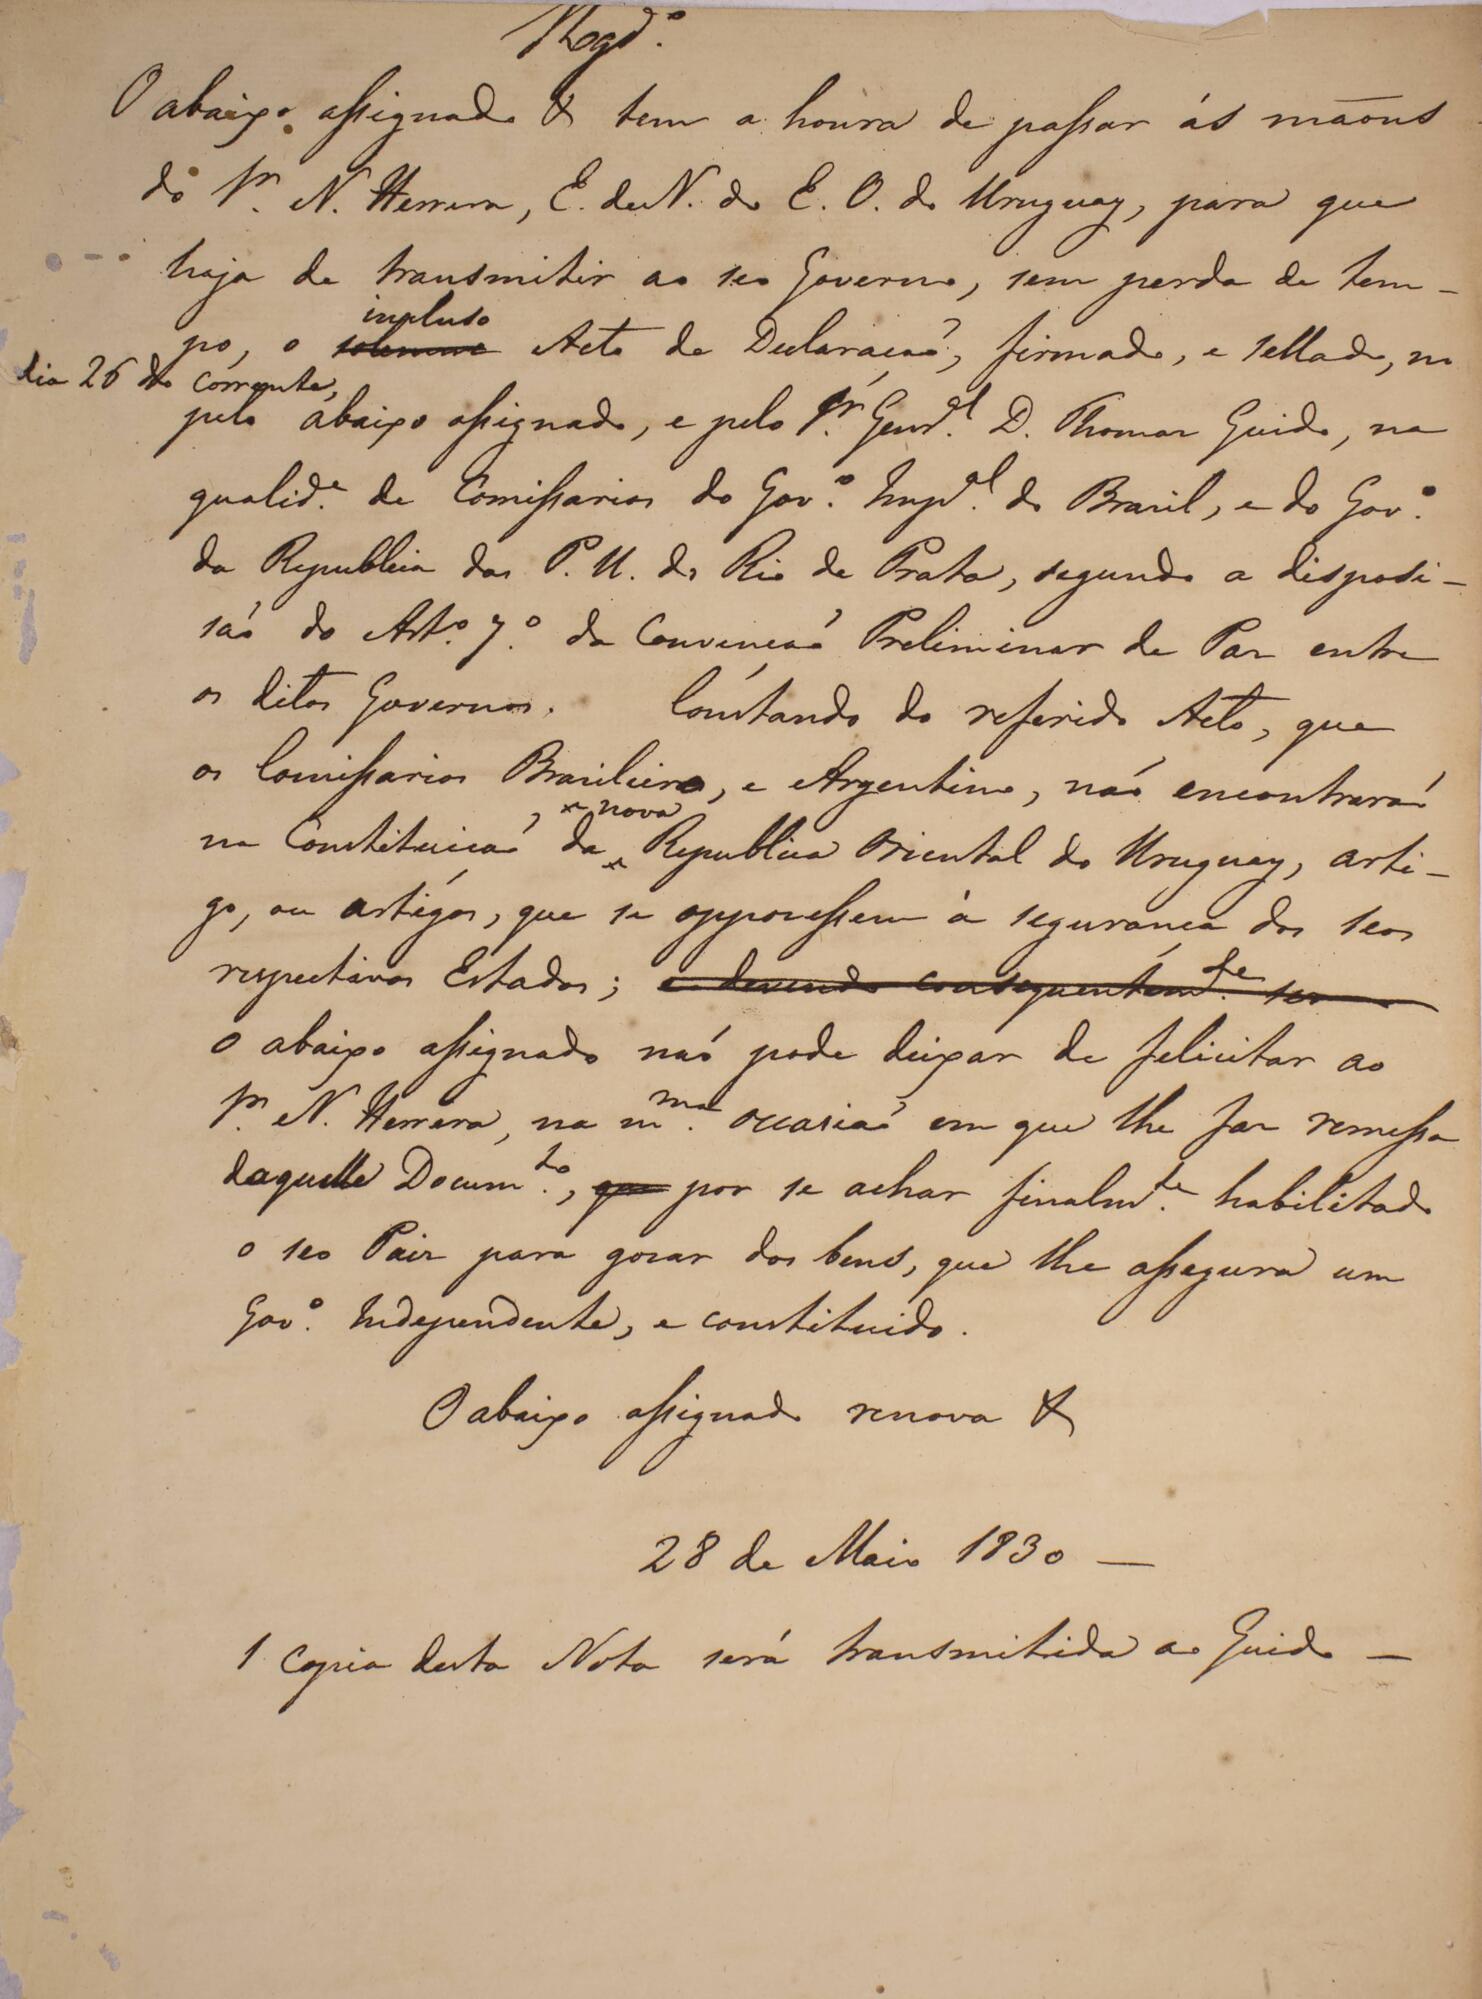 Regd.º
O abaixo assignado & tem a honra de passar ás mãons
do Sr. N. Herrera, E. de N. do E. O. do Uruguay, para que
haja de transmitir ao seo Governo, sem perda de tem-
incluso
po, o solemne Acto de Declaracaõ, firmado, e sellado, no
dia 26 do corrente,
pelo abaixo assignado, e pelo Sr. Gener.al D. Thomas Guido, na
qualid.e de Comissarios do Gov.º Imp.al do Brazil, e do Gov.º
da Republica das P. U. do Rio de Prata, segundo a disposi-
saõ do Art.º 7.º da Convencaõ Preliminar de Paz entre
os ditos Governos. Constando do referido Acto, que
os Comissarios Brasileiro, e Argentino, naõ encontraraõ
* nova
na Constituicaõ da * Republica Oriental do Uruguay, arti-
go, ou artigos, que se oppozessem á seguranca dos seos
respectivos Estados; e devendo consequentem.te ser
o abaixo assignado naõ pode deixar de felicitar ao
Sr. N. Herrera, na m.ma occasiaõ em que lhe faz remessa
daquelle Docum.to, que por se achar finalm.te habilitado
o seo Paiz para gozar dos bens, que lhe assegura um
Gov.º Independente, e constituido.
O abaixo assignado renova &
28 de Maio 1830 —
1 Copia desta Nota será transmitida ao Guido —